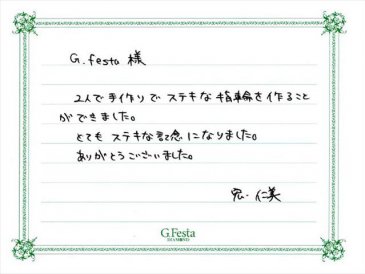 G.festa 様
2人で手作りで ステキな指輪を作ること
ができました。
とても ステキな記念になりました。
ありがとうございました。
宏・仁美
G.Festa
DIAMOND